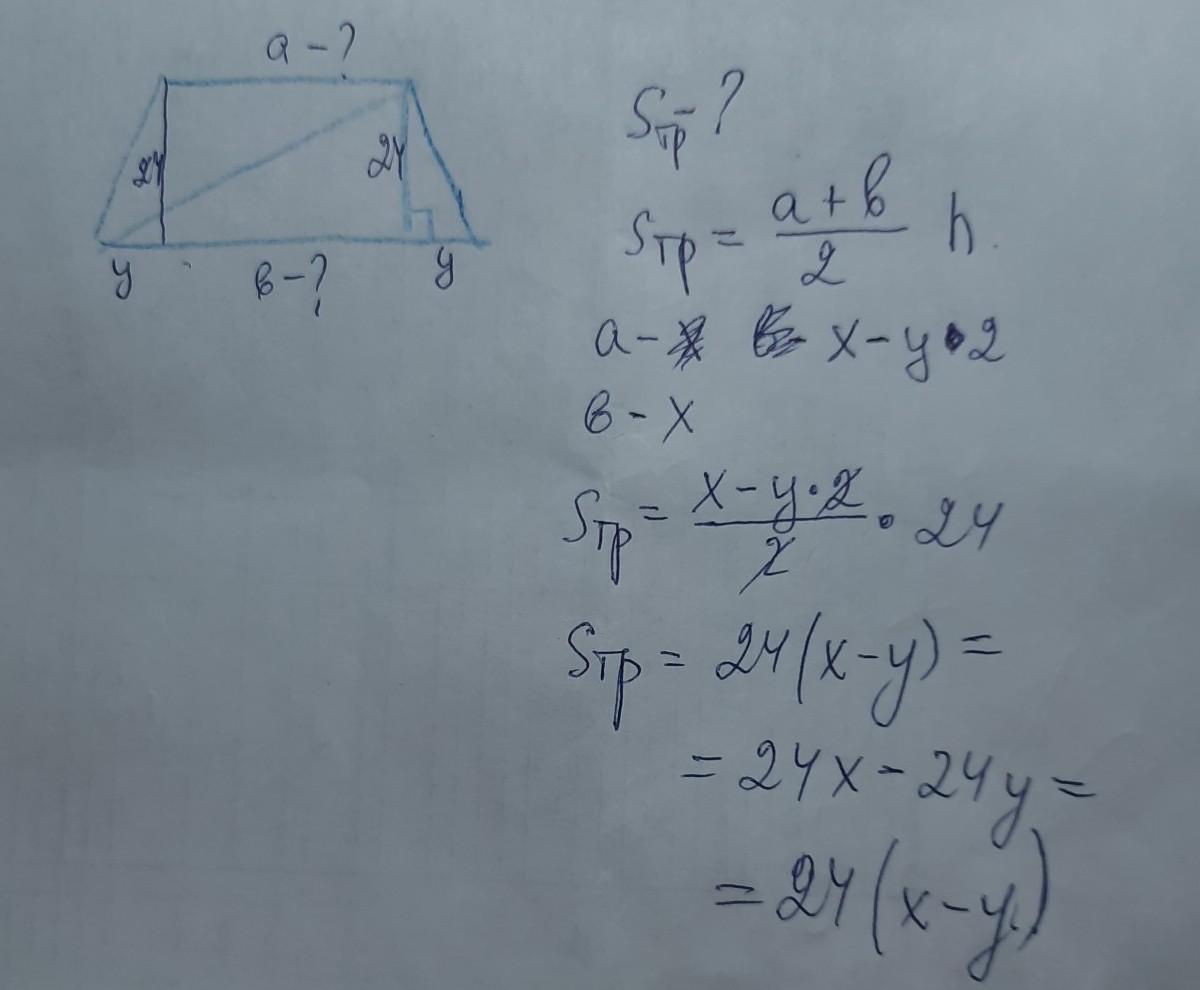 a - ?
24
24
y
в - ?
y
Sтр - ?
Sтр = a + в / 2 h.
a - x - y • 2
в - x
Sтр = x - y • 2 / 2 • 24
Sтр = 24 (x - y) =
= 24x - 24y =
= 24 (x - y)